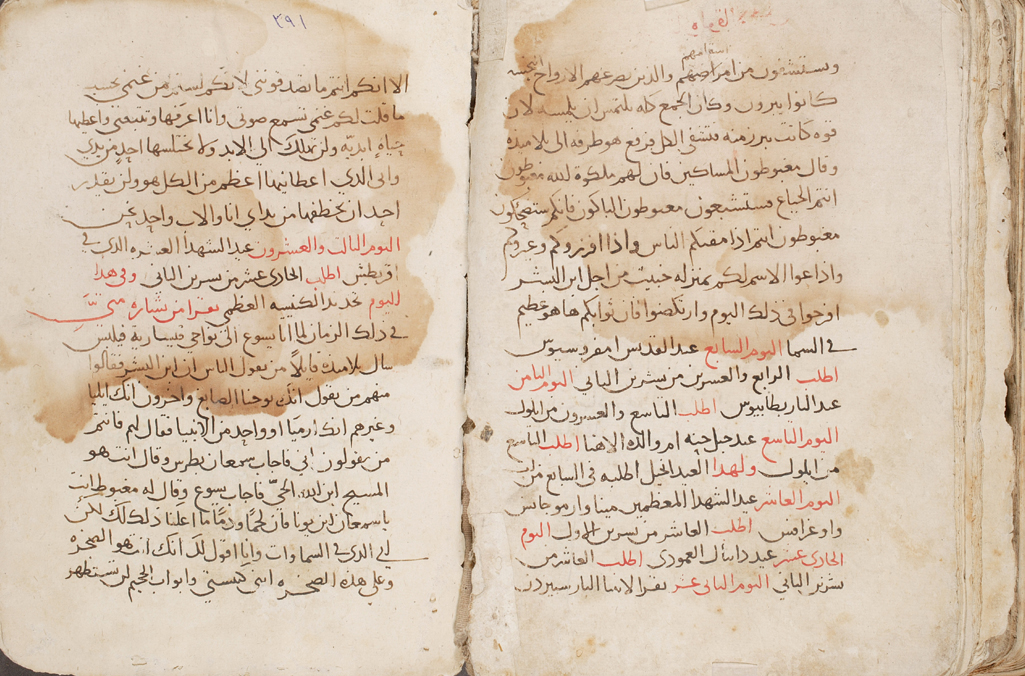 اسقامهم
ويستشفون من امراضهم والذين يصرعهم الارواح النجسه
كانوا يبرون وكان الجمع كله يلتمس ان يلمسه لان
قوه كانت تبرز منه فتشفي الكل فرفع هو طرفه الى تلاميذه
وقال مغبوطون المساكين فان لهم ملكوة الله مغبوطون
انتم الجياع فستشبعون مغبوطون الباكون فانكم ستضحكون
مغبوطون انتم اذا مقتكم الناس واذا افرزوكم وعيروكم
واذاعوا الاسم لكم بمنزله خبيث من اجل ابن البشر
افرحوا في ذلك اليوم وارتكضوا فان ثوابكم هاهو عظيم
في السما اليوم السابع عيد القديس
اطلب الرابع والعشرين من تشرين الثاني اليوم الثامن
عيد اطلب التاسع والعشرون من ايلول
اليوم التاسع عيد حنه ام والدة الاهنا اطلب التاسع
من ايلول ولهذا العيد اطلبه في السابع من
اليوم العاشر عيد الشهدا المعظمين مينا وارموجانس
واوغرافس اطلب العاشر من تشرين الاول اليوم
الحادي عشر عيد دانيال العمودي اطلب العاشر من
تشرين الثاني اليوم الثاني عشر نقرا لابينا البار سبيردن
٣٩١
الا انكم انتم ما تصدقونني لانكم لستم من غنمي بحسب
ما قلت لكم غنمي تسمع صوتي وانا اعرفها وتتبعني واعطيها
حياة ابديه ولن تهلك الى الابد ولا يختلسها احد من يدي
وابي الذي اعطانيها اعظم من الكل هو ولن يقدر
احد ان يخطفها من يد ابي انا والاب واحد نحن
اليوم الثالث والعشرون عيد الشهدا العشره الذي في
اقريطش اطلب الحادي عشر من تشرين الثاني وفي هذا
اليوم تجديد الكنيسه العظمى نقرا من بشارة متي
في ذلك الزمان لما اتا يسوع الى نواحي قيسارية فيلبس
سال تلاميذه قايلا من يقول الناس ان ابن البشر فقالوا
منهم من يقول انك يوحنا الصابغ واخرون انك ايليا
وغيرهم انك ارميا او واحد من الانبيا فقال لهم فانتم
من تقولون اني فاجاب سمعان بطرس وقال انت هو
المسيح ابن الله الحي فاجاب يسوع وقال له مغبوط انت
ياسمعان ابن يونا فان لحما ودما ما اعلنا ذلك لك لكن
ابي الذي في السماوات وانا اقول لك انك انت هو الصخره
وعلى هذه الصخره ابني كنيستي وابواب الجحيم لن تستظهر